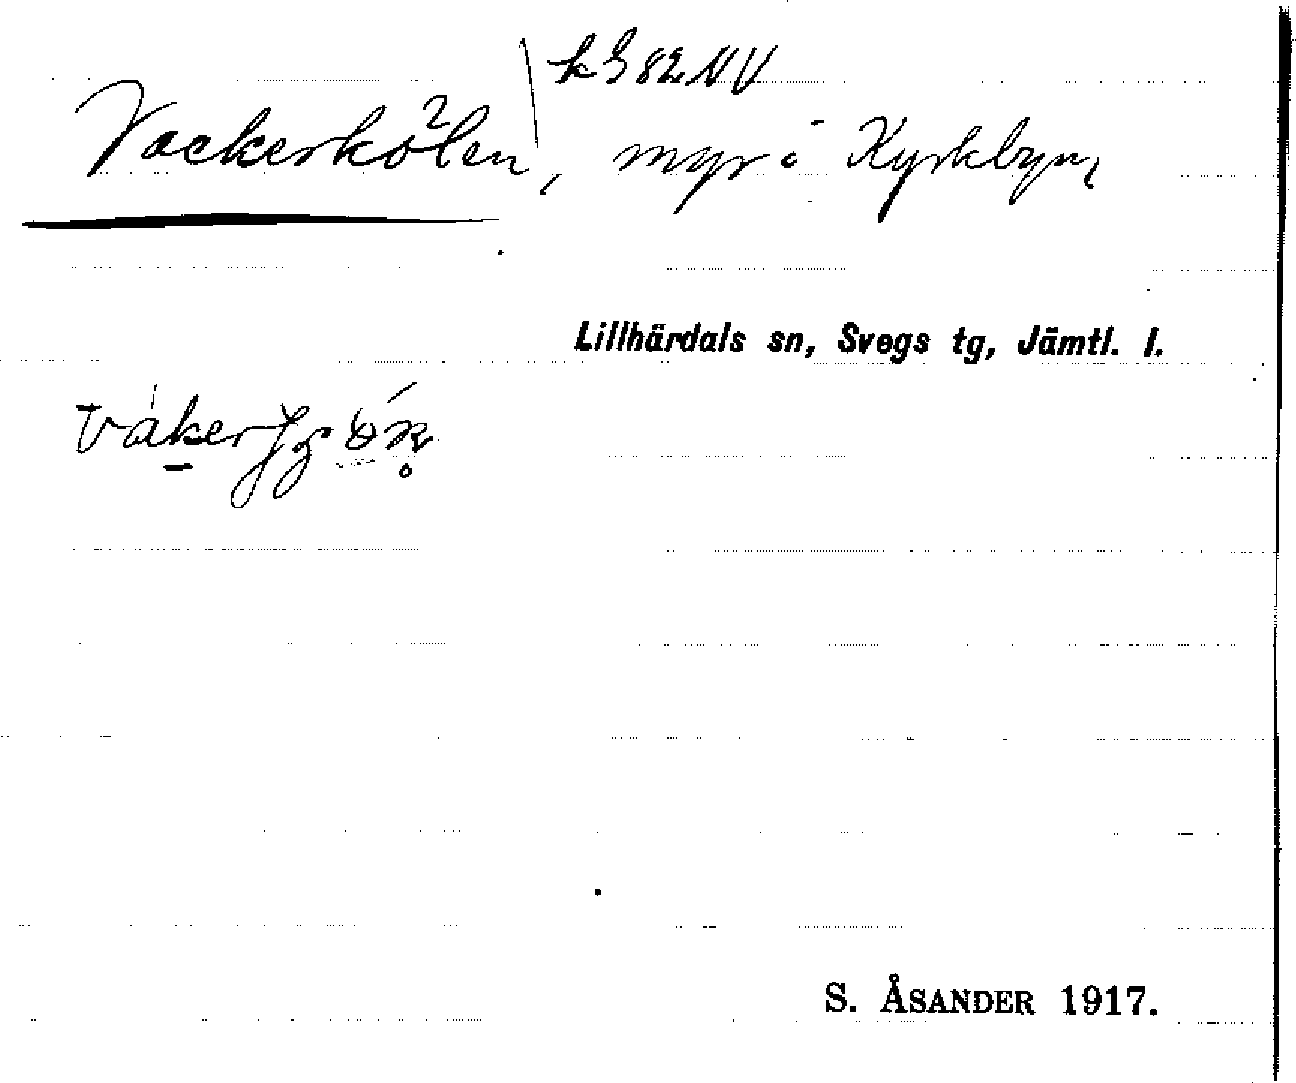 k G 82 NV
Vackerkölen, myr i Kyrkbyn,
Lillhärdals sn, Svegs tg, Jämtl. l.
S. ÅSANDER 1917.